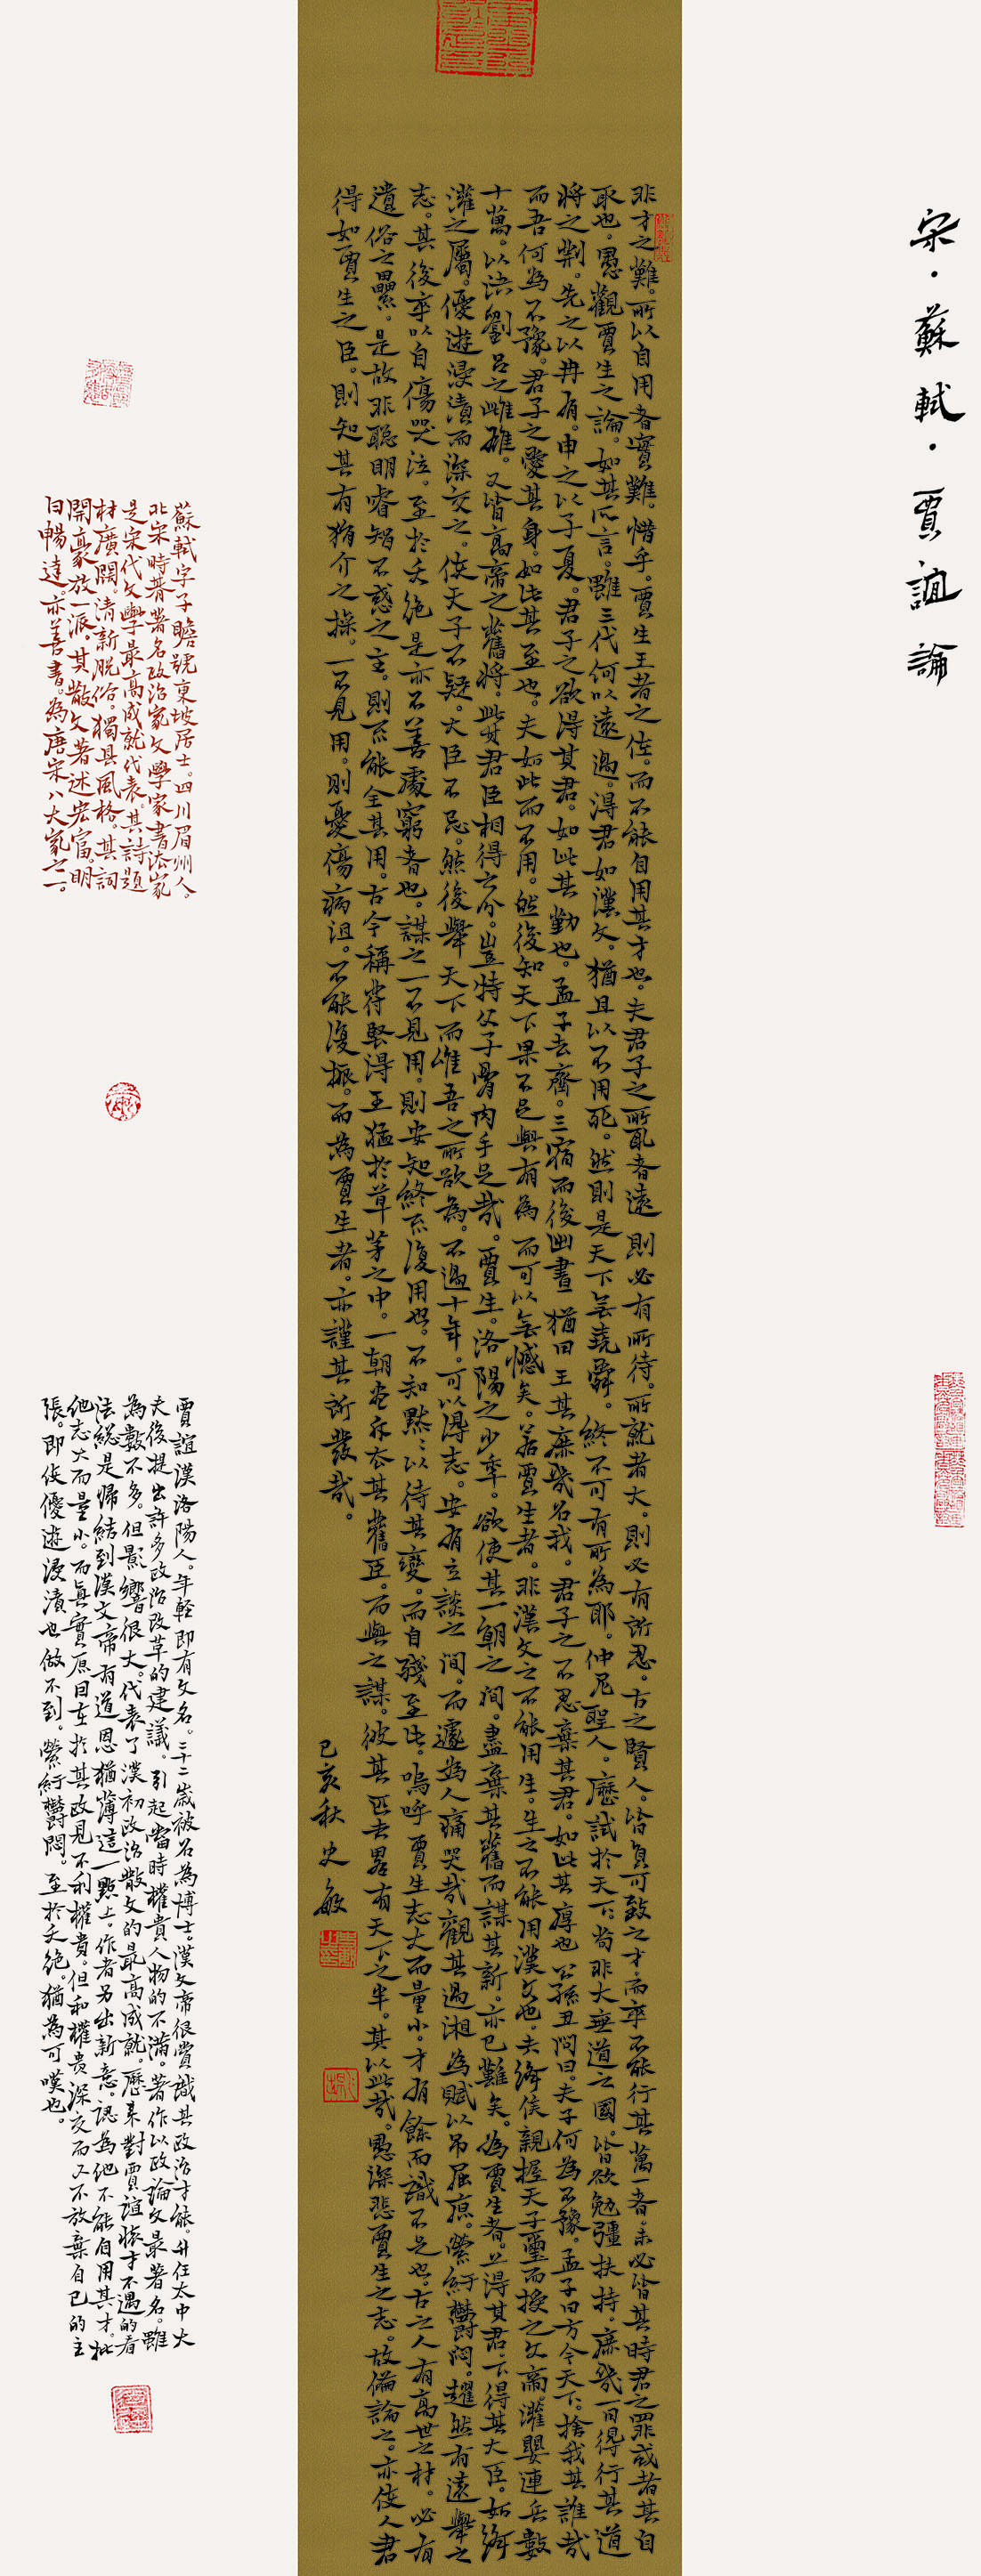 宋·蘇軾·賈誼論
非才之難。所以自用者實難。惜乎。賈生王者之佐。而不能自用其才也。夫君子之所取者遠則必有所待。所就者大。則必有所忍。古之賢人。皆負可致之才。而卒不能行其萬一者。未必皆其時君之罪或者其自
取也。愚觀賈生之論。如其所言。雖三代何以遠過。得君如漢文。猶且以不用死。然則是天下無堯舜。終不可有所為耶。仲尼聖人。歷試於天下。尚非大無道之國。皆欲勉彊扶持。庶幾一日得行其道
將之荆。先之以冉有。申之以子夏。君子之欲得其君。如此其勤也。孟子去齊。三宿而後出晝猶曰王其庶幾召我。君子之不忍棄其君。如此其厚也公孫丑問曰。夫子何為不豫。孟子曰方今天下。捨我其誰哉
而吾何為不豫。君子之愛其身。如此其至也。夫如此而不用。然後知天下果不足與有為而可以無憾矣。若賈生者。非漢文之不能用生。生之不能用漢文也。夫絳侯親握天子璽而授之文帝。灌嬰連兵數
十萬。以決劉呂之雌雄。又皆高帝之舊將。此其君臣相得之分。豈特父子骨肉手足哉。賈生。洛陽之少年。欲使其一朝之間。盡棄其舊而謀其新。亦已難矣。為賈生者。上得其君。下得其大臣。如絳
灌之屬。優遊浸漬而深交之。使天子不疑。大臣不忌。然後舉天下而唯吾之所欲為。不過十年。可以得志。安有立談之間。而遽為人痛哭哉觀其過湘為賦以吊屈原。縈紆鬱悶。趯然有遠舉之
志。其後卒以自傷哭泣。至於夭絕是亦不善處窮者也。謀之一不見用。則安知終不復用也。不知默默以待其變。而自殘至此。嗚呼賈生志大而量小。才有餘而識不足也。古之人有高世之材。必有
遺俗之累。是故非聰明睿智不惑之主。則不能全其用。古今稱苻堅得王猛於草茅之中。一朝盡斥去其舊臣。而與之謀。彼其匹夫略有天下之半。其以此哉。愚深悲賈生之志。故備論之。亦使人君
得如賈生之臣。則知其有狷介之操。一不見用。則憂傷病沮。不能復振。而為賈生者。亦謹其所發哉。
己亥秋史敏
蘇軾字子瞻號東坡居士。四川眉州人。
北宋時著著名政治家文學家書法家
是宋代文學最高成就代表。其詩題
材廣闊。清新脫俗。獨具風格。其詞
開豪放一派。其散文著述宏富。明
白暢達。亦善書。為唐宋八大家之一。
賈誼漢洛陽人。年輕即有文名。二十二歲被召為博士。漢文帝很賞識其政治才能。升任太中大
夫後提出許多政治改革的建議。引起當時權貴人物的不滿。著作以政論文最著名。雖
為數不多。但影響很大。代表了漢初政治散文的最高成就。歷來對賈誼懷才不遇的看
法總是歸結到漢文帝有道恩猶薄這一點上。作者另出新意。認為他不能自用其才。批
他志大而量小。而真實原因在於其政見不利權貴。但和權貴深交而又不放棄自己的主
張。即使優遊浸漬也做不到。縈紆鬱悶。至於夭絕。猶為可嘆也。